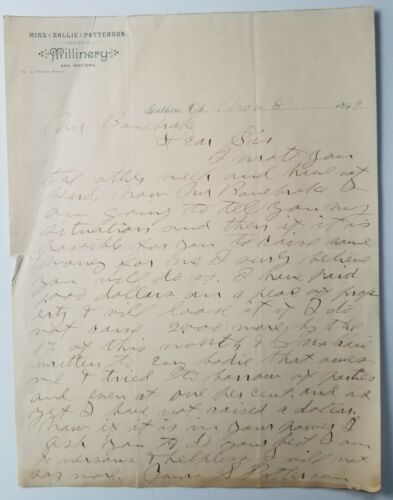 MISS SALLIE PATTERSON,
Millinery
AND NOTIONS,
Guthrie, Ok. Nov 8 1892
Mr Bonebrake
Dear Sir
I wrote you
the other week and have not
heard. Now Mr Bonebrake I
am going to tell you my
situation and then if it is
possible for you to raise some
money for me I surly believe
you will do so. I have paid
dollars on a peas of prop
erty & will loose it if I do
not raise 2000 more by the
of this month & I have
written to Eary bodie that owes
me & tried to borrow of parties
and even at one per cent. and as
yet I have not raised a dollar.
Now if it is in your power I
ask you to do your best I am
nervous & helpless I will not
say more. Yours S Patterson